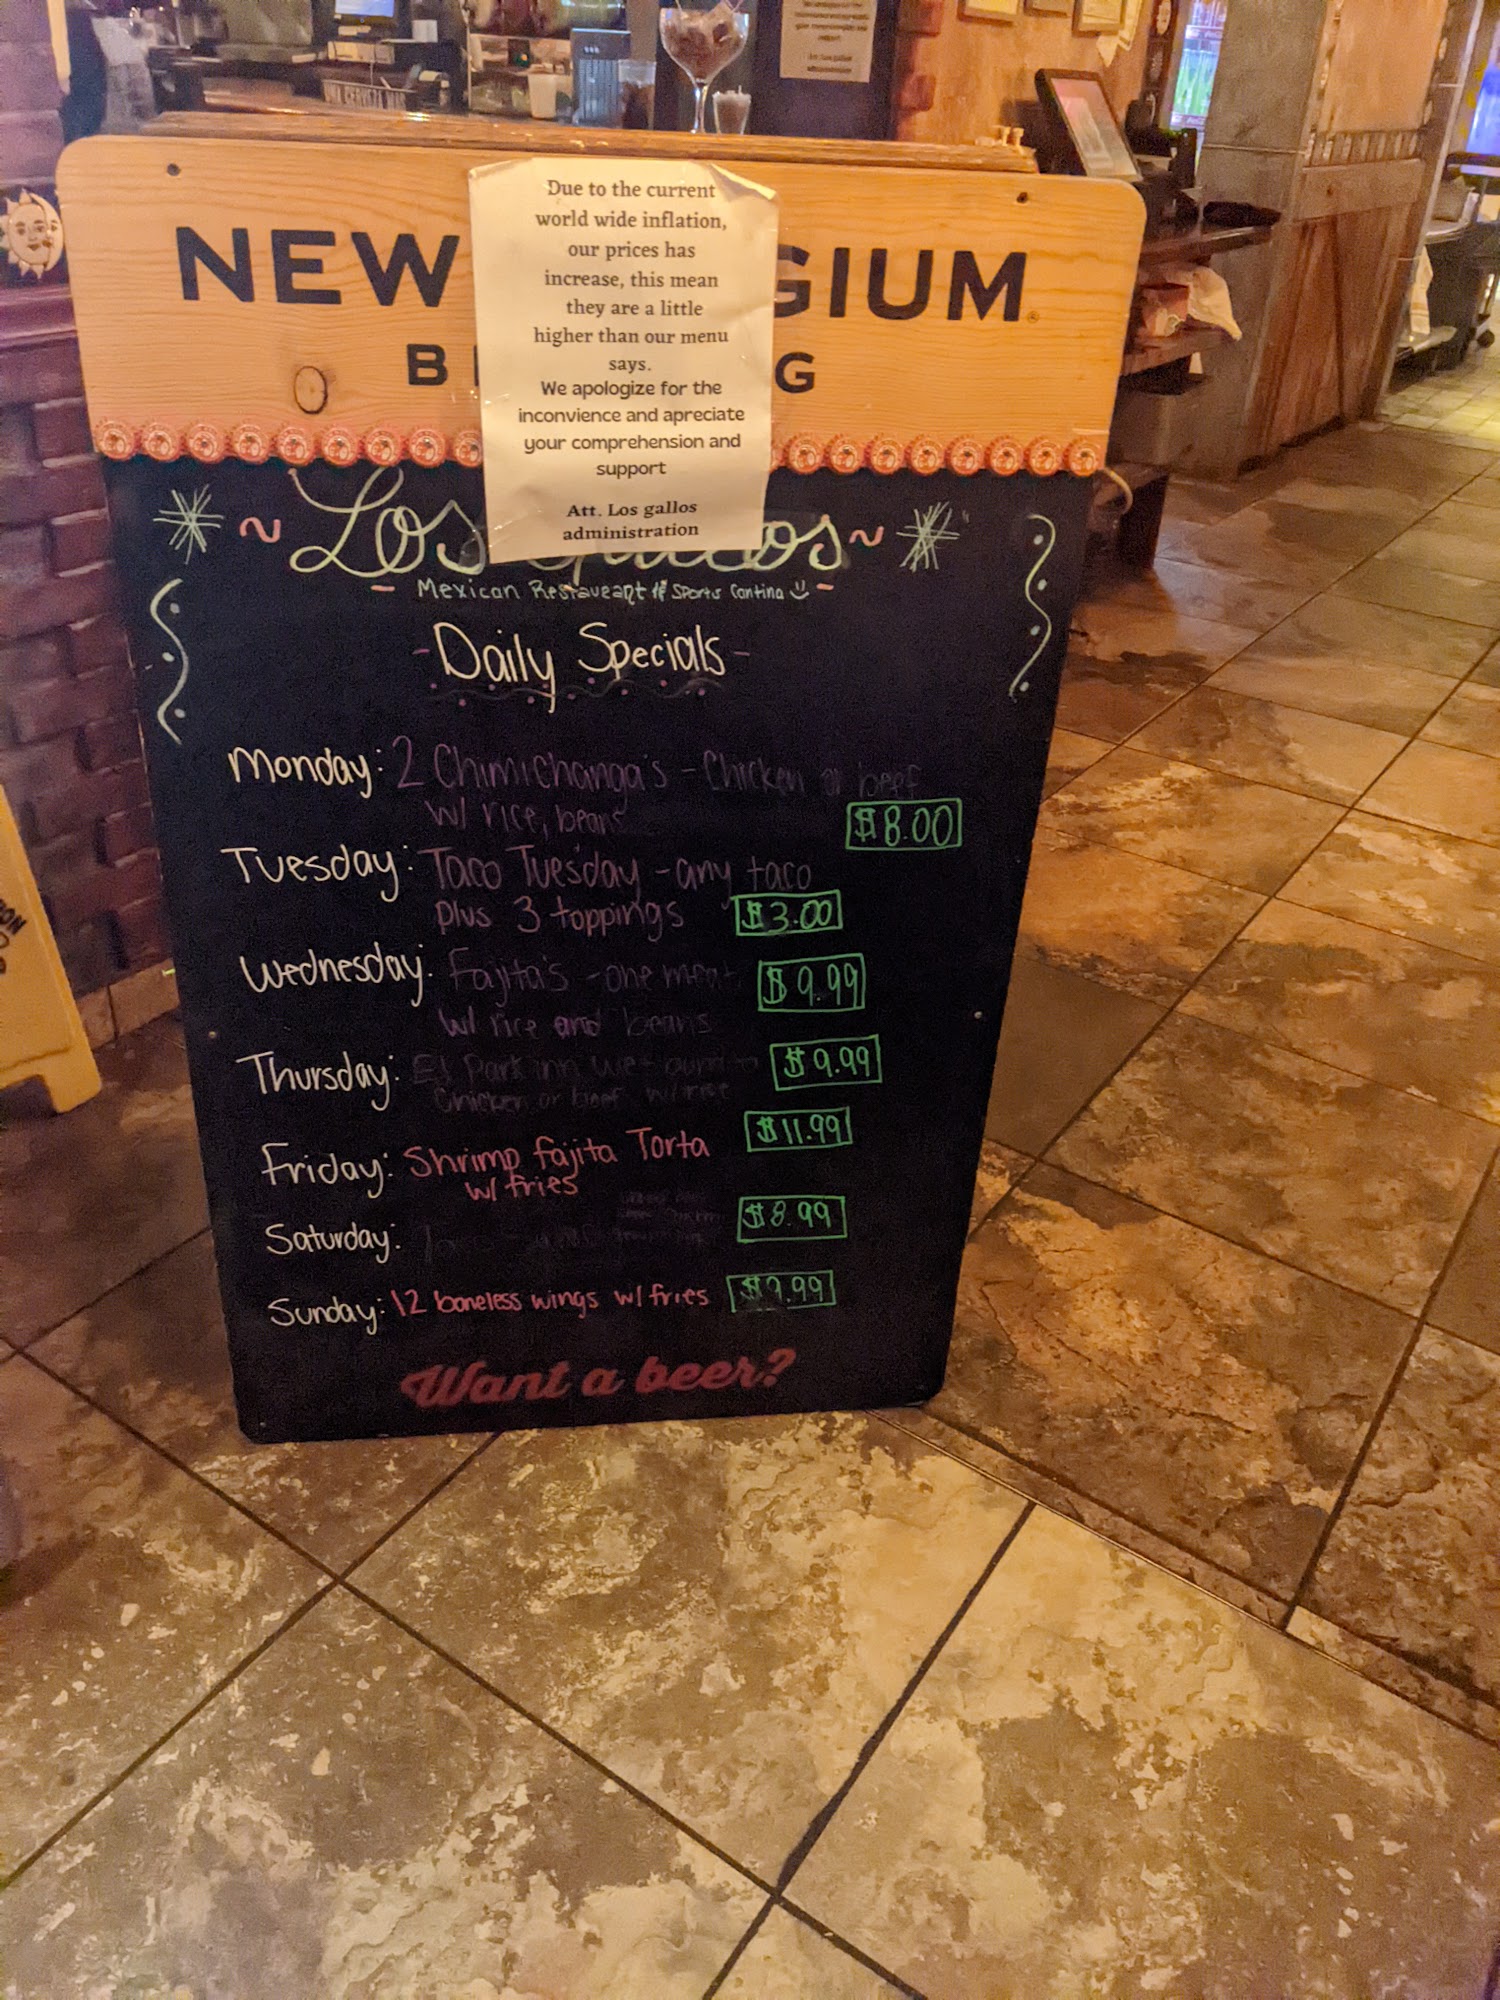 NEW GIUM
B G
Due to the current
world wide inflation,
our prices has
increase, this mean
they are a little
higher than our menu
says.
We apologize for the
inconvience and apreciate
your comprehension and
support
Att. Los gallos
administration
Los
Mexican Restaueant & Sports Cantina
- Daily Specials -
Monday: 2 Chimichanga's - Chicken or beef
w/ rice, beans $8.00
Tuesday: Taco Tuesday - any taco
plus 3 toppings $3.00
Wednesday: Fajita's - one meat $9.99
w/ rice and beans
Thursday: El Park inn wet $9.99
Chicken or beef w/ rice
Friday: Shrimp fajita Torta $11.99
w/ fries
Saturday: $8.99
Sunday: 12 boneless wings w/ fries 9.99
Want a beer?